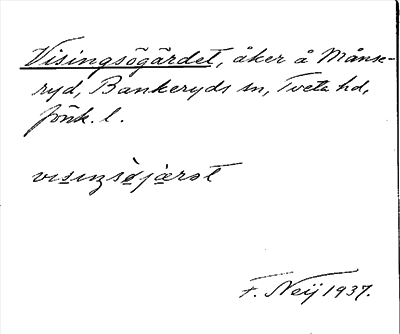 Visingsögärdet, åker å Måns-
ryd, Bankeryds sn, Tveta hd,
Jönk. l.
visiŋsöjæršt
F. Neij 1937.